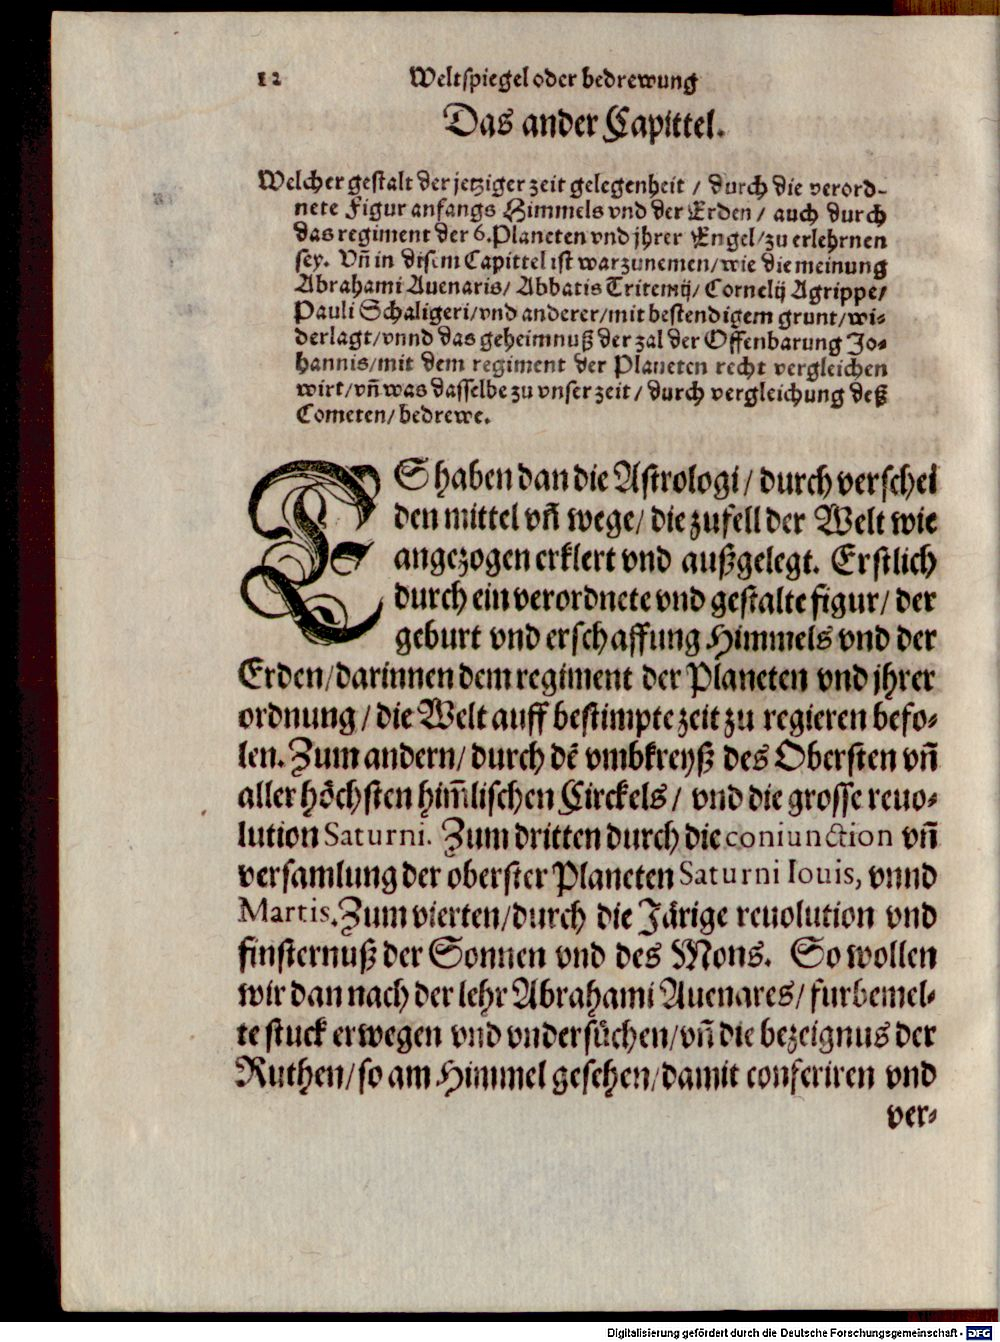 12 Weltspiegel oder bedrewung
Das ander Capittel.
Welcher gestalt der jetziger zeit gelegenheit / durch die verord-
nete Figur anfangs Himmels vnd der Erden / auch durch
das regiment der 6. Planeten vnd jhrer Engel / zu erlehrnen
sey. Vñ in disem Capittel ist warzunemen / wie die meinung
Abrahami Auenaris / Abbatis Tritemij / Cornelij Agrippe /
Pauli Schaligeri / vnd anderer / mit bestendigem grunt / wi-
derlagt / vnnd das geheimnuß der zal der Offenbarung Jo-
hannis / mit dem regiment der Planeten recht vergleichen
wirt / vñ was dasselbe zu vnser zeit / durch vergleichung deß
Cometen / bedrewe.
ES haben dan die Astrologi / durch verschei
den mittel vñ wege / die zufell der Welt wie
angezogen erklert vnd außgelegt. Erstlich
durch ein verordnete vnd gestalte figur / der
geburt vnd erschaffung Himmels vnd der
Erden / darinnen dem regiment der Planeten vnd jhrer
ordnung / die Welt auff bestimpte zeit zu regieren befo-
len. Zum andern / durch dẽ vmbkreyß des Obersten vñ
aller höchsten him̃lischen Circkels / vnd die grosse reuo-
lution Saturni. Zum dritten durch die coniunction vñ
versamlung der oberster Planeten Saturni Iouis, vnnd
Martis. Zum vierten / durch die Järige reuolution vnd
finsternuß der Sonnen vnd des Mons. So wollen
wir dan nach der lehr Abrahami Auenares / furbemel-
te stuck erwegen vnd vndersůchen / vñ die bezeignus der
Ruthen / so am Himmel gesehen / damit conferiren vnd
ver-
Digitalisierung gefördert durch die Deutsche Forschungsgemeinschaft - DFG